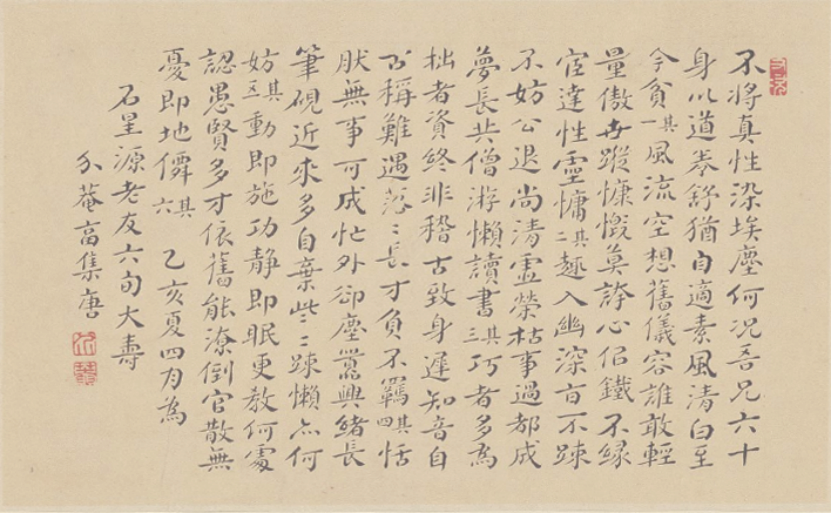 不將真性染埃塵何況吾兄六十
身以道卷舒猶自適素風清白至
今貧其一風流空想舊儀容誰敢輕
量傲世蹤慷慨莫誇心似鐵不緣
宦達性靈慵其二趣入幽深百不疎
不妨公退尚清虛榮枯事過都成
夢長共僧游懶讀書其三巧者多為
拙者資終非稽古致身遲知音自
古稱難遇落〻長才負不羈其四恬
肰無事可成忙外卻塵囂興緒長
筆硯近來多自棄些〻疎懶亦何
妨其五動即施功靜即眠更教何處
認愚賢多才依舊能潦倒官散無
憂即地僊其六 乙亥夏四月為
石星源老友六旬大壽
菴集唐